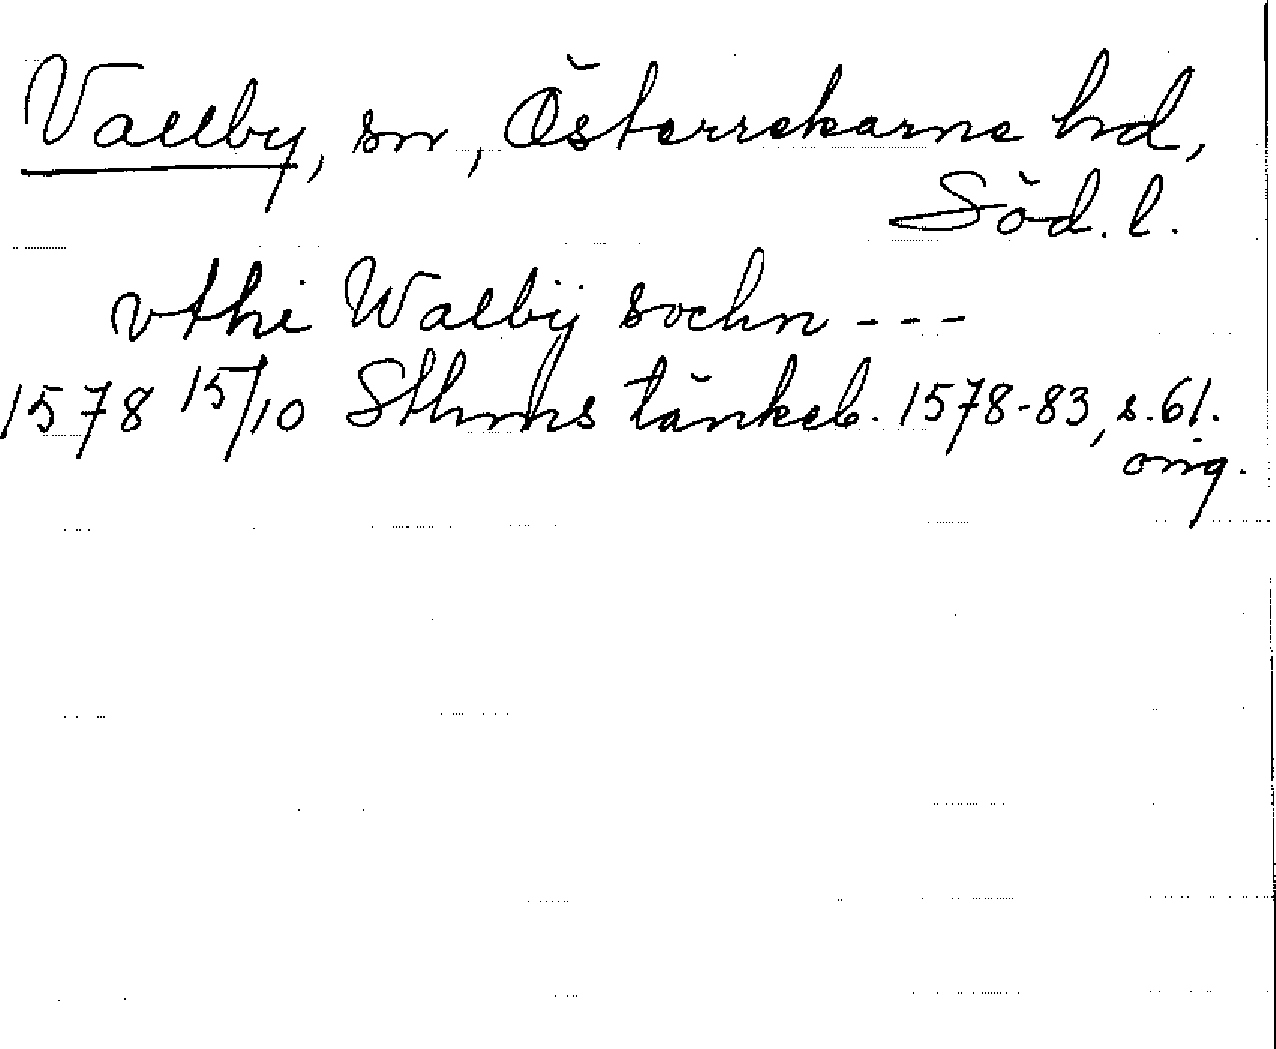 Vallby, sn, Österrekarne hd,
Söd. l.
vthi Walbÿ sochn ---
1578 15/10 Sthms tänkeb. 1578-83, s. 61.
orig.